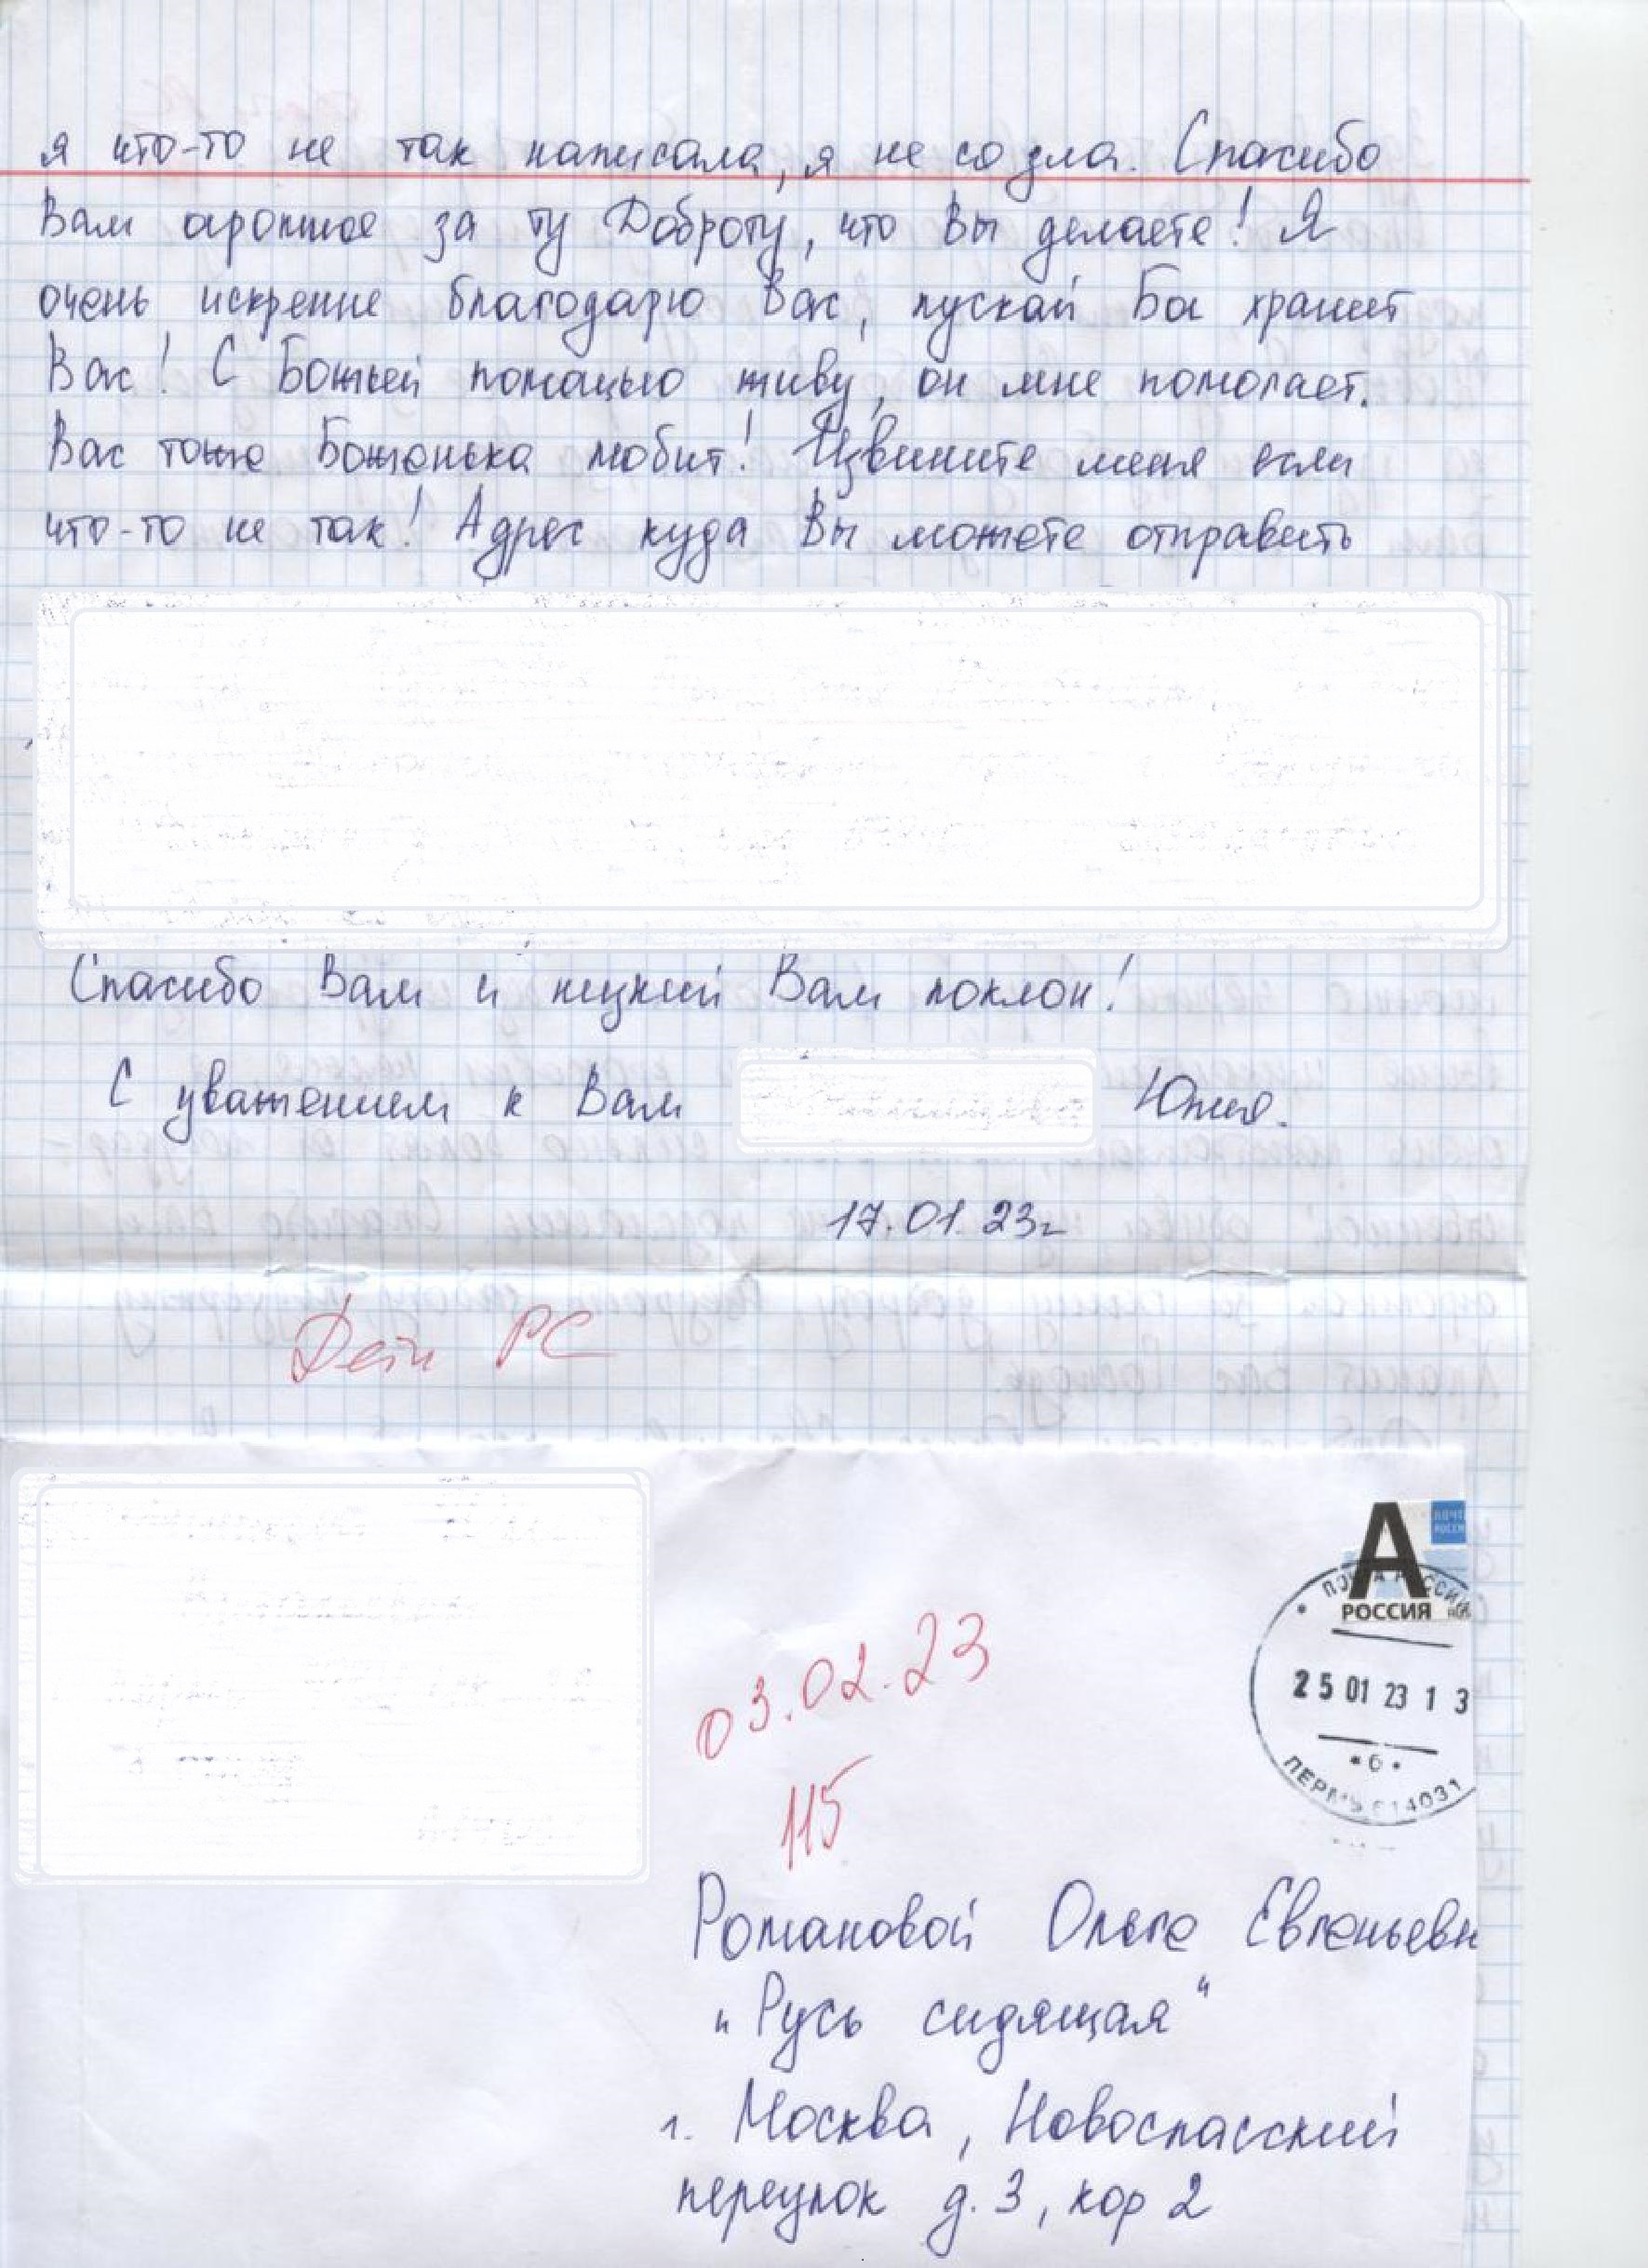 я что-то не так написала, я не со зла. Спасибо
Вам огромное за ту Доброту, что Вы делаете! Я
очень искренне благодарю Вас, пускай Бог хранит
Вас! С Божьей помощью живу, он мне помогает.
Вас тоже Боженька любит! Извините меня если
что-то не так! Адрес куда Вы можете отправить
Спасибо Вам и низкий Вам поклон!
С уважением к Вам Юлия.
17.01.23г
Дети РС
А
РОССИЯ
ПОЧТА РОССИИ
25 01 23 1 3
* 6 *
ПЕРМЬ 614031
03.02.23
115
Романовой Ольге Евгеньевн
"Русь сидящая"
г. Москва, Новоспасский
переулок д. 3, кор 2